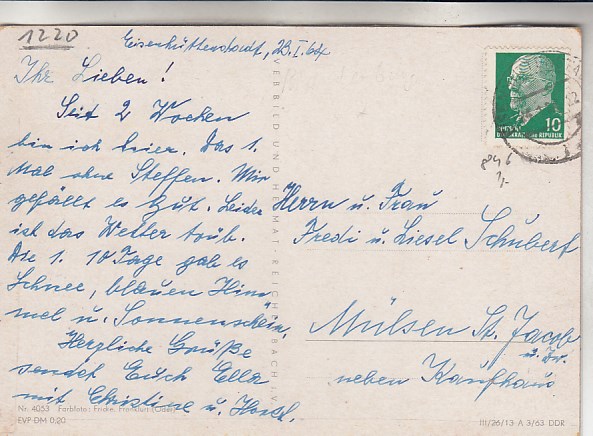 1220
Eisenhüttenstadt, 23.I.64
Ihr Lieben!
Seit 2 Wochen
bin ich hier. Das 1.
Mal ohne Steffen. Mir
gefällt es gut. Leider
ist das Wetter trüb.
Die 1. 10 Tage gab es
Schnee, blauen Him
mel u. Sonnenschein.
Herzliche Grüße
sendet Euch Ella
mit Christine u. Horst.
VERBILD UND HEIMAT REICHENBACH I.V.
Nr. 4053 Farbfoto: Fricke, Frankfurt (Oder)
EVP-DM 0,20
10
DEUTSCHE DEMOKRATISCHE REPUBLIK
846
Herrn u. Frau
Fredi u. Liesel Schubert
Mülsen St. Jacob
neben Kaufhaus
III/26/13 A 3/63 DDR